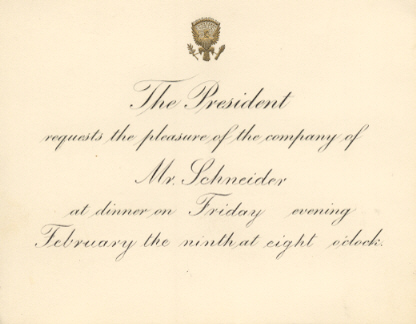 The President
requests the pleasure of the company of
Mr. Schneider
at dinner on Friday evening
February the ninth at eight o'clock.